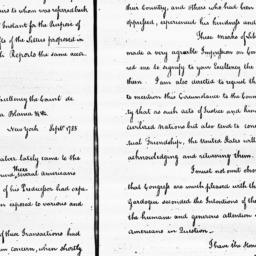 irs to whom was referred back
Instant for the Purpose of
fts of the Letters proposed in
h Reports the same acco
Excellency the Count de
a Blanca &ca
New York Septr 1785
ader lately came to the
these
und, several americans
of his Predecessor had expe
en exposed to various and
of these Transactions had
m concern, when shortly
their Country, and others who had been
oppressed, experienced his kindness and
These marks of lib
made a very agreable Impression on
ed me to signify to your Excellency the
them. I am also directed to request th
to mention this Circumstance to the Coun
ty that as such acts of Justice and huma
civilized nations but also tend to con
tual Friendship, the United States will
acknowledging and returning them.
I must not omit obse
that Congress are much pleased with th
Gardoqui seconded the Intentions of the
the humane and generous attention
americans in Question
I have the Hono